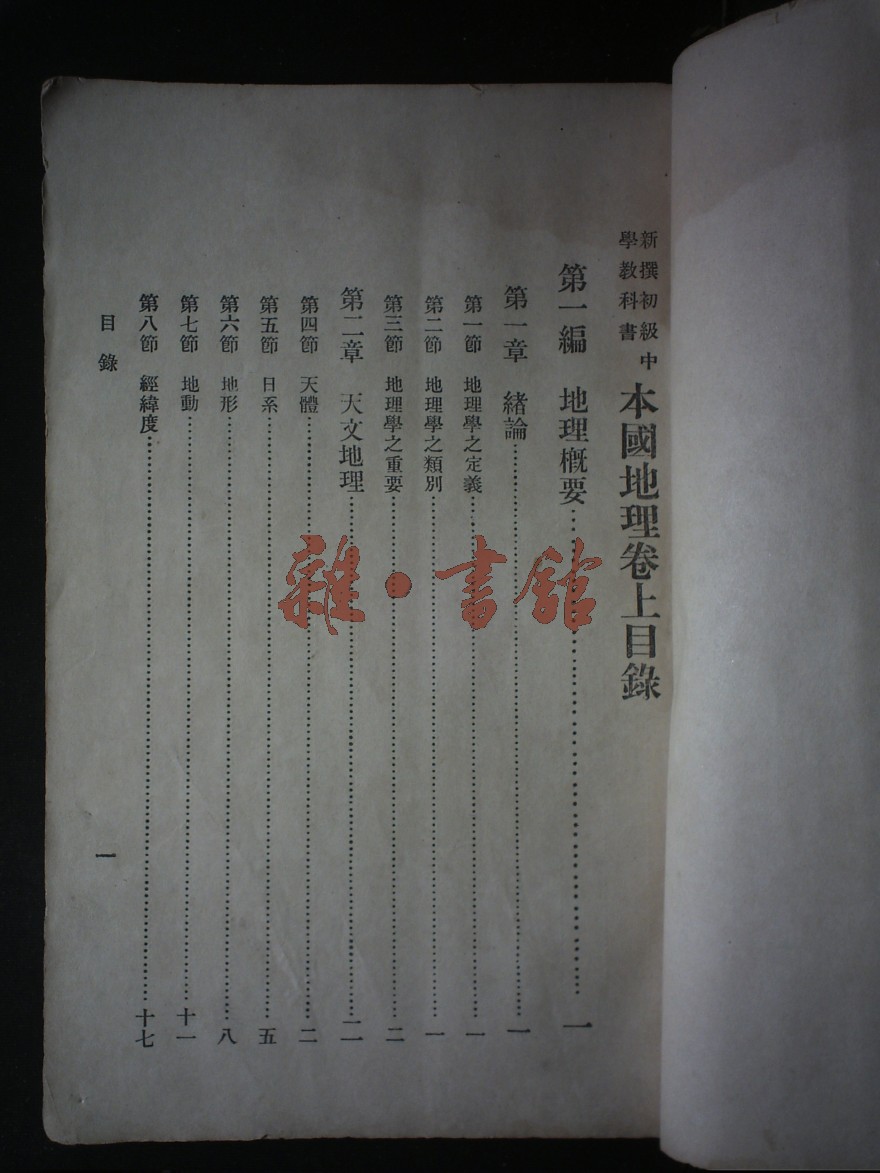 新撰初級中
學教科書
本國地理卷上目錄
第一編 地理概要…………一
第一章 緒論…………一
第一節 地理學之定義…………一
第二節 地理學之類別…………一
第三節 地理學之重要…………二
第二章 天文地理…………二
第四節 天體…………二
第五節 日系…………五
第六節 地形…………八
第七節 地動…………十一
第八節 經緯度…………十七
目錄
一
雜·書館